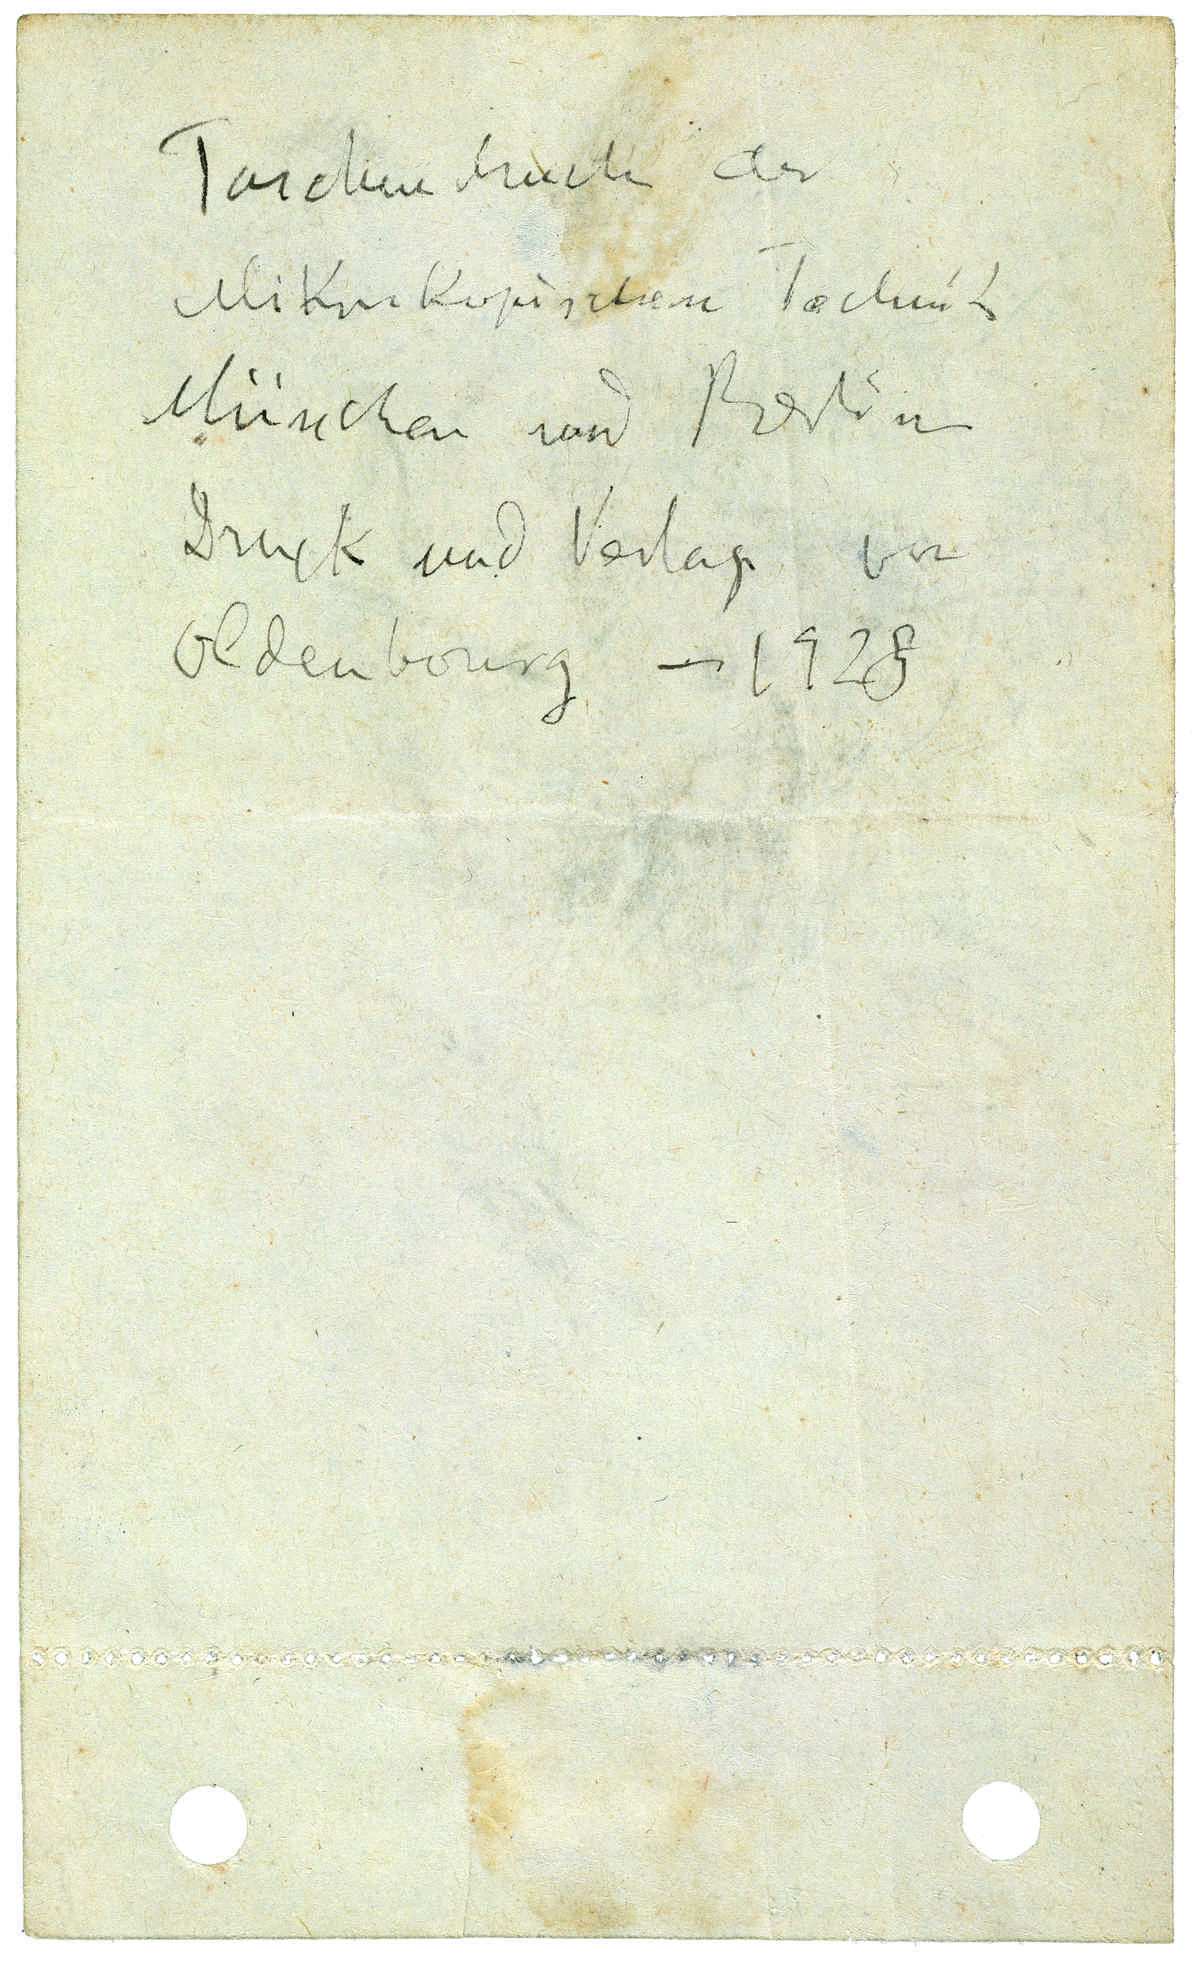 Taschenbuch der
Mikroskopischen Technik
München und Berlin
Druck und Verlag von
Oldenbourg — 1928